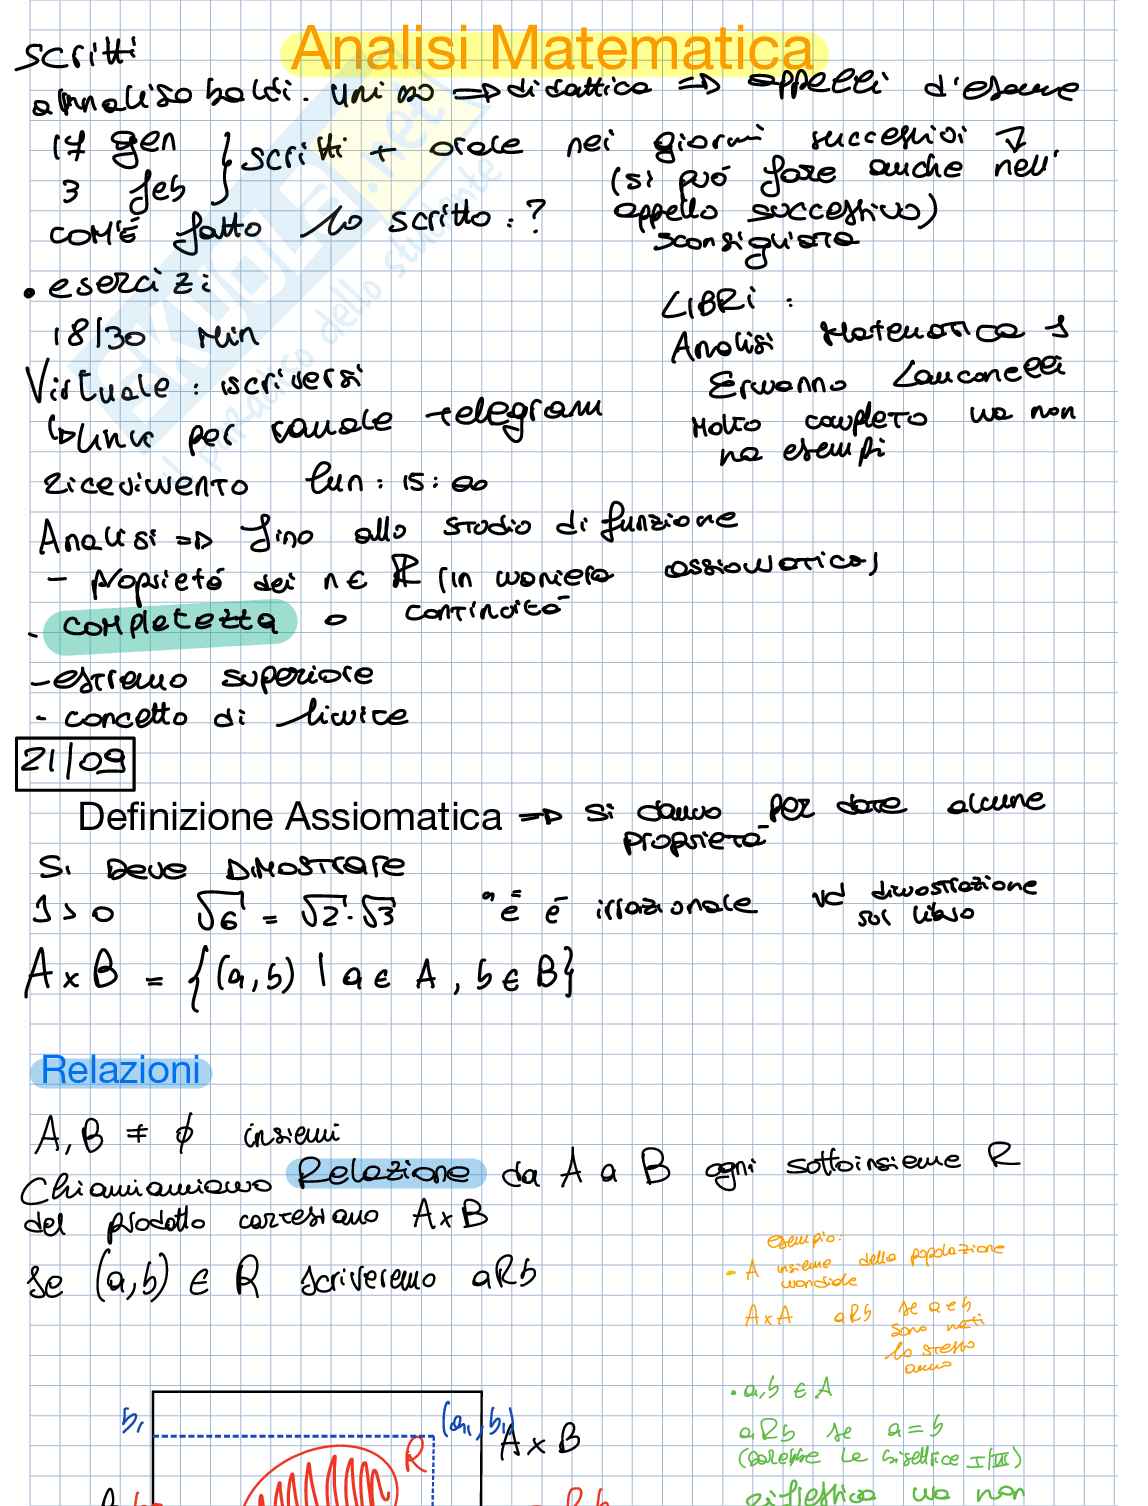 Analisi Matematica
scritti
annalisa baldi. unibo => didattica => appelli d'esame
17 gen
3 feb } scritti + orale nei giorni successivi
(si può fare anche nell'
appello successivo)
sconsigliata
COM'É fatto lo scritto:?
• esercizi:
18/30 Min
Virtuale: iscriversi
↳ link per canale telegram
ricevimento lun: 15:00
LIBRi:
Analisi Matematica 1
Ermanno Lanconelli
Molto completo ma non
ha esempi
Analisi => fino allo studio di funzione
- proprietà dei n ∈ ℝ (in maniera assiomatica)
- completezza o continuità
- estremo superiore
- concetto di limite
21/09
Definizione Assiomatica => si danno per date alcune
proprietà
Si DEVE DiMOSTRARE
1 > 0 √6 = √2·√3 "e" é irrazionale vd dimostrazione
sul libro
A x B = {(a,b) | a ∈ A, b ∈ B}
Relazioni
A, B ≠ ∅ insiemi
Chiamiamo Relazione da A a B ogni sottoinsieme R
del prodotto cartesiano A x B
se (a,b) ∈ R scriveremo aRb
esempio:
- A insieme della popolazione
mondiale
A x A aRb se a e b
sono nati
lo stesso
anno
• a,b ∈ A
aRb se a = b
(sarebbe la bisettrice I/III)
riflessiva ma non
b₁ (a₁, b₁) A x B
R